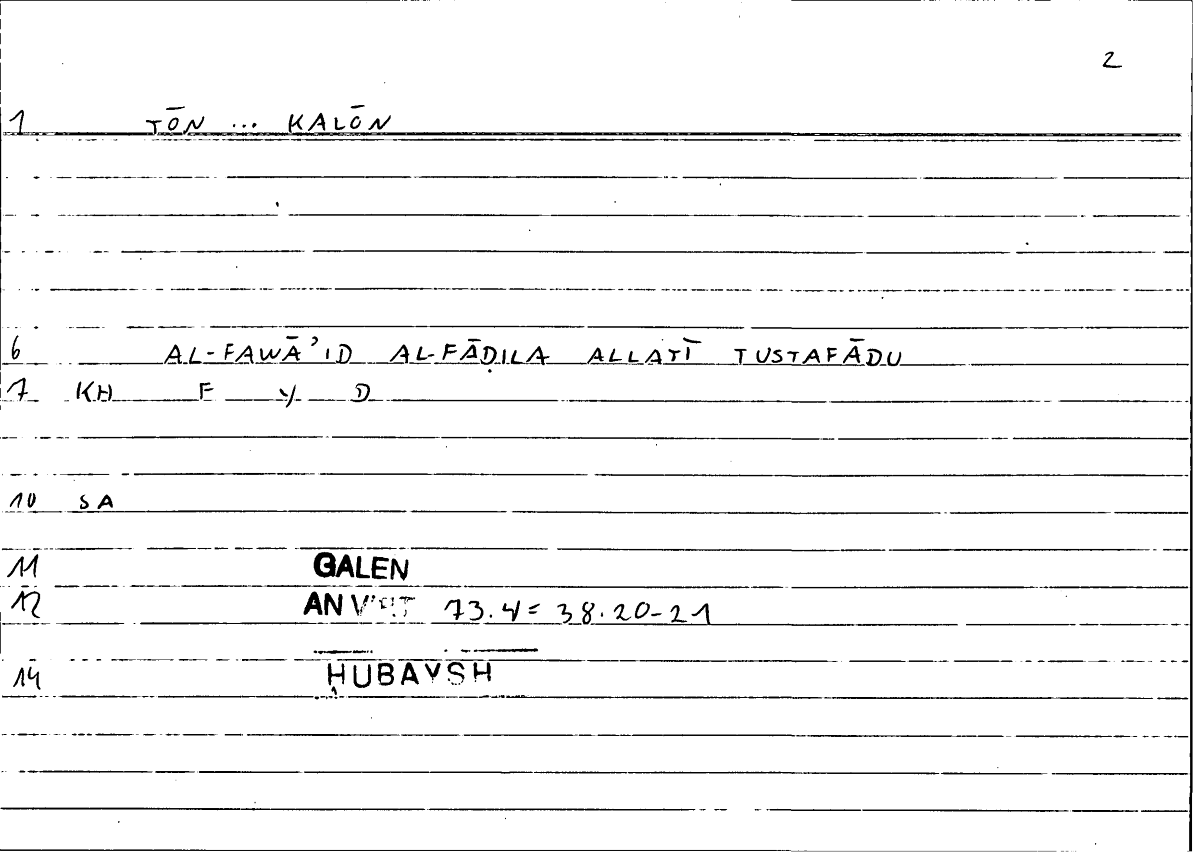 2
1 TŌN ... KALŌN
6 AL-FAWĀ'ID AL-FĀḌILA ALLATĪ TUSTAFĀDU
7 KH F Y D
10 SA
11 GALEN
12 AN VIRT 73.4 = 38.20-21
14 ḤUBAYSH